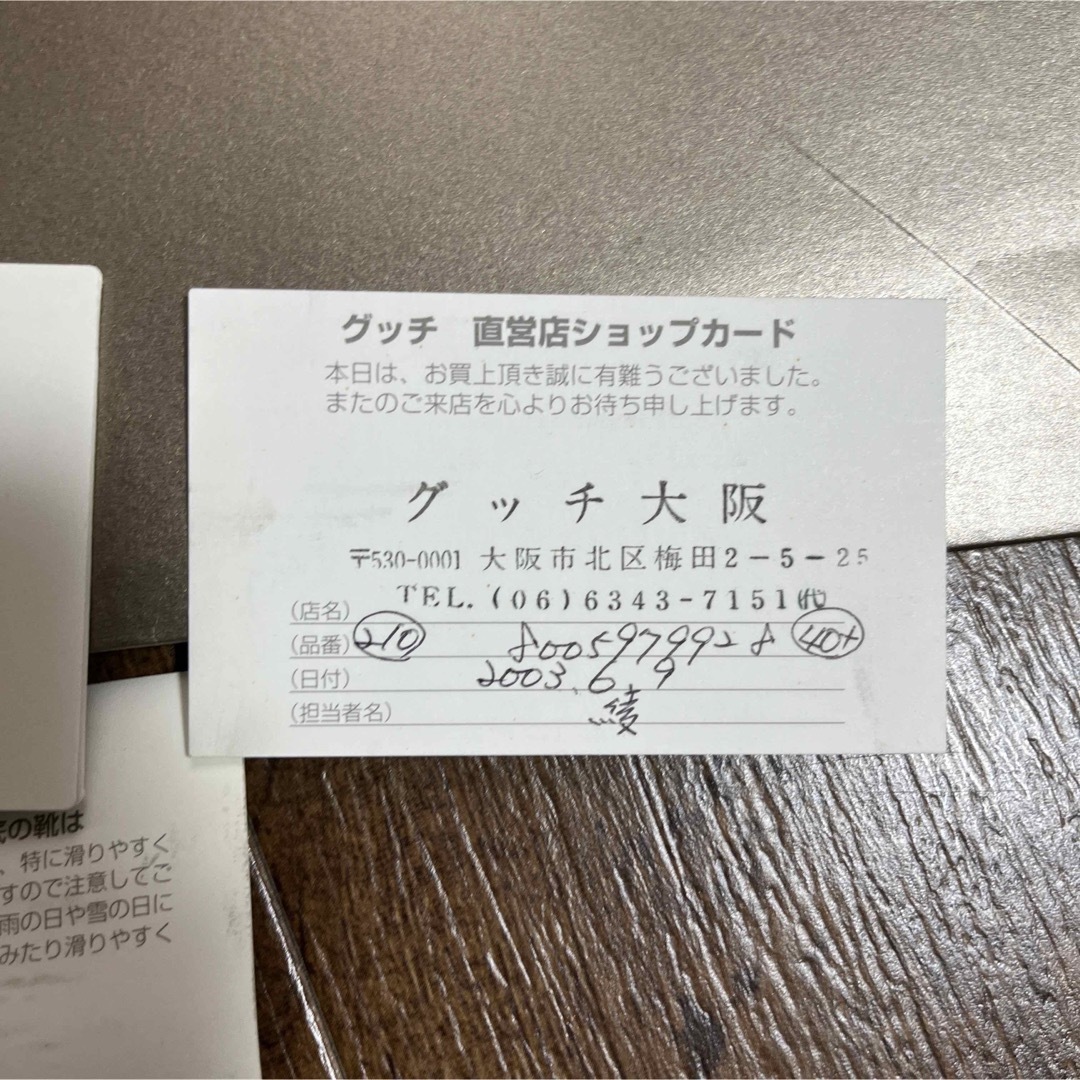 グッチ 直営店ショップカード
本日は、お買上頂き誠に有難うございました。
またのご来店を心よりお待ち申し上げます。
グッチ大阪
〒530-0001 大阪市北区梅田2-5-25
TEL.(06)6343-7151㈹
(店名)
(品番) 210 8005979928 40+
(日付) 2003.6.9
(担当者名)
の靴は
、特に滑りやすく
すので注意してご
雨の日や雪の日に
みたり滑りやすく